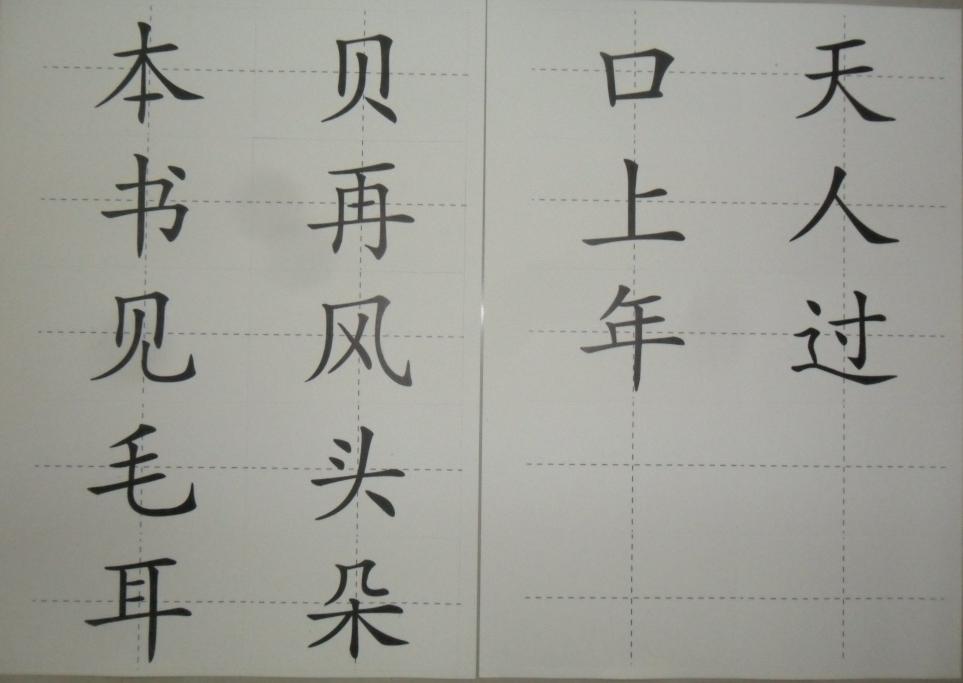 本 贝
书 再
见 风
毛 头
耳 朵
口 天
上 人
年 过